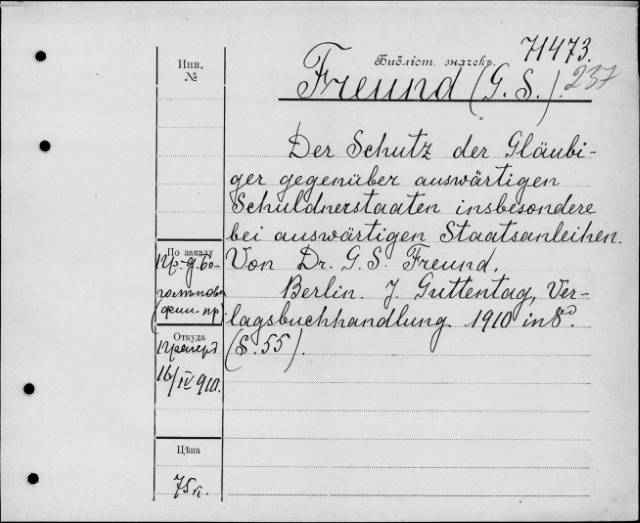 71473.
Инв.
№
Библіот. значекъ.
237
Freund (G. S.).
Der Schutz der Gläubi-
ger gegenüber auswärtigen
Schuldnerstaaten insbesondere
bei auswärtigen Staatsanleihen.
По заказу
Von Dr. G. S. Freund.
Berlin. J. Guttentag, Ver-
(фин. пр.)
lagsbuchhandlung. 1910 in 8°.
Откуда
(S. 55).
16/IV 910.
Цѣна
75 к.